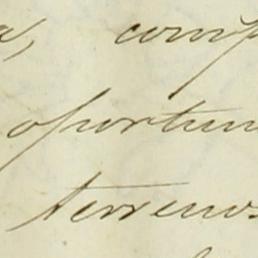 a, comp
oportun
terrenos